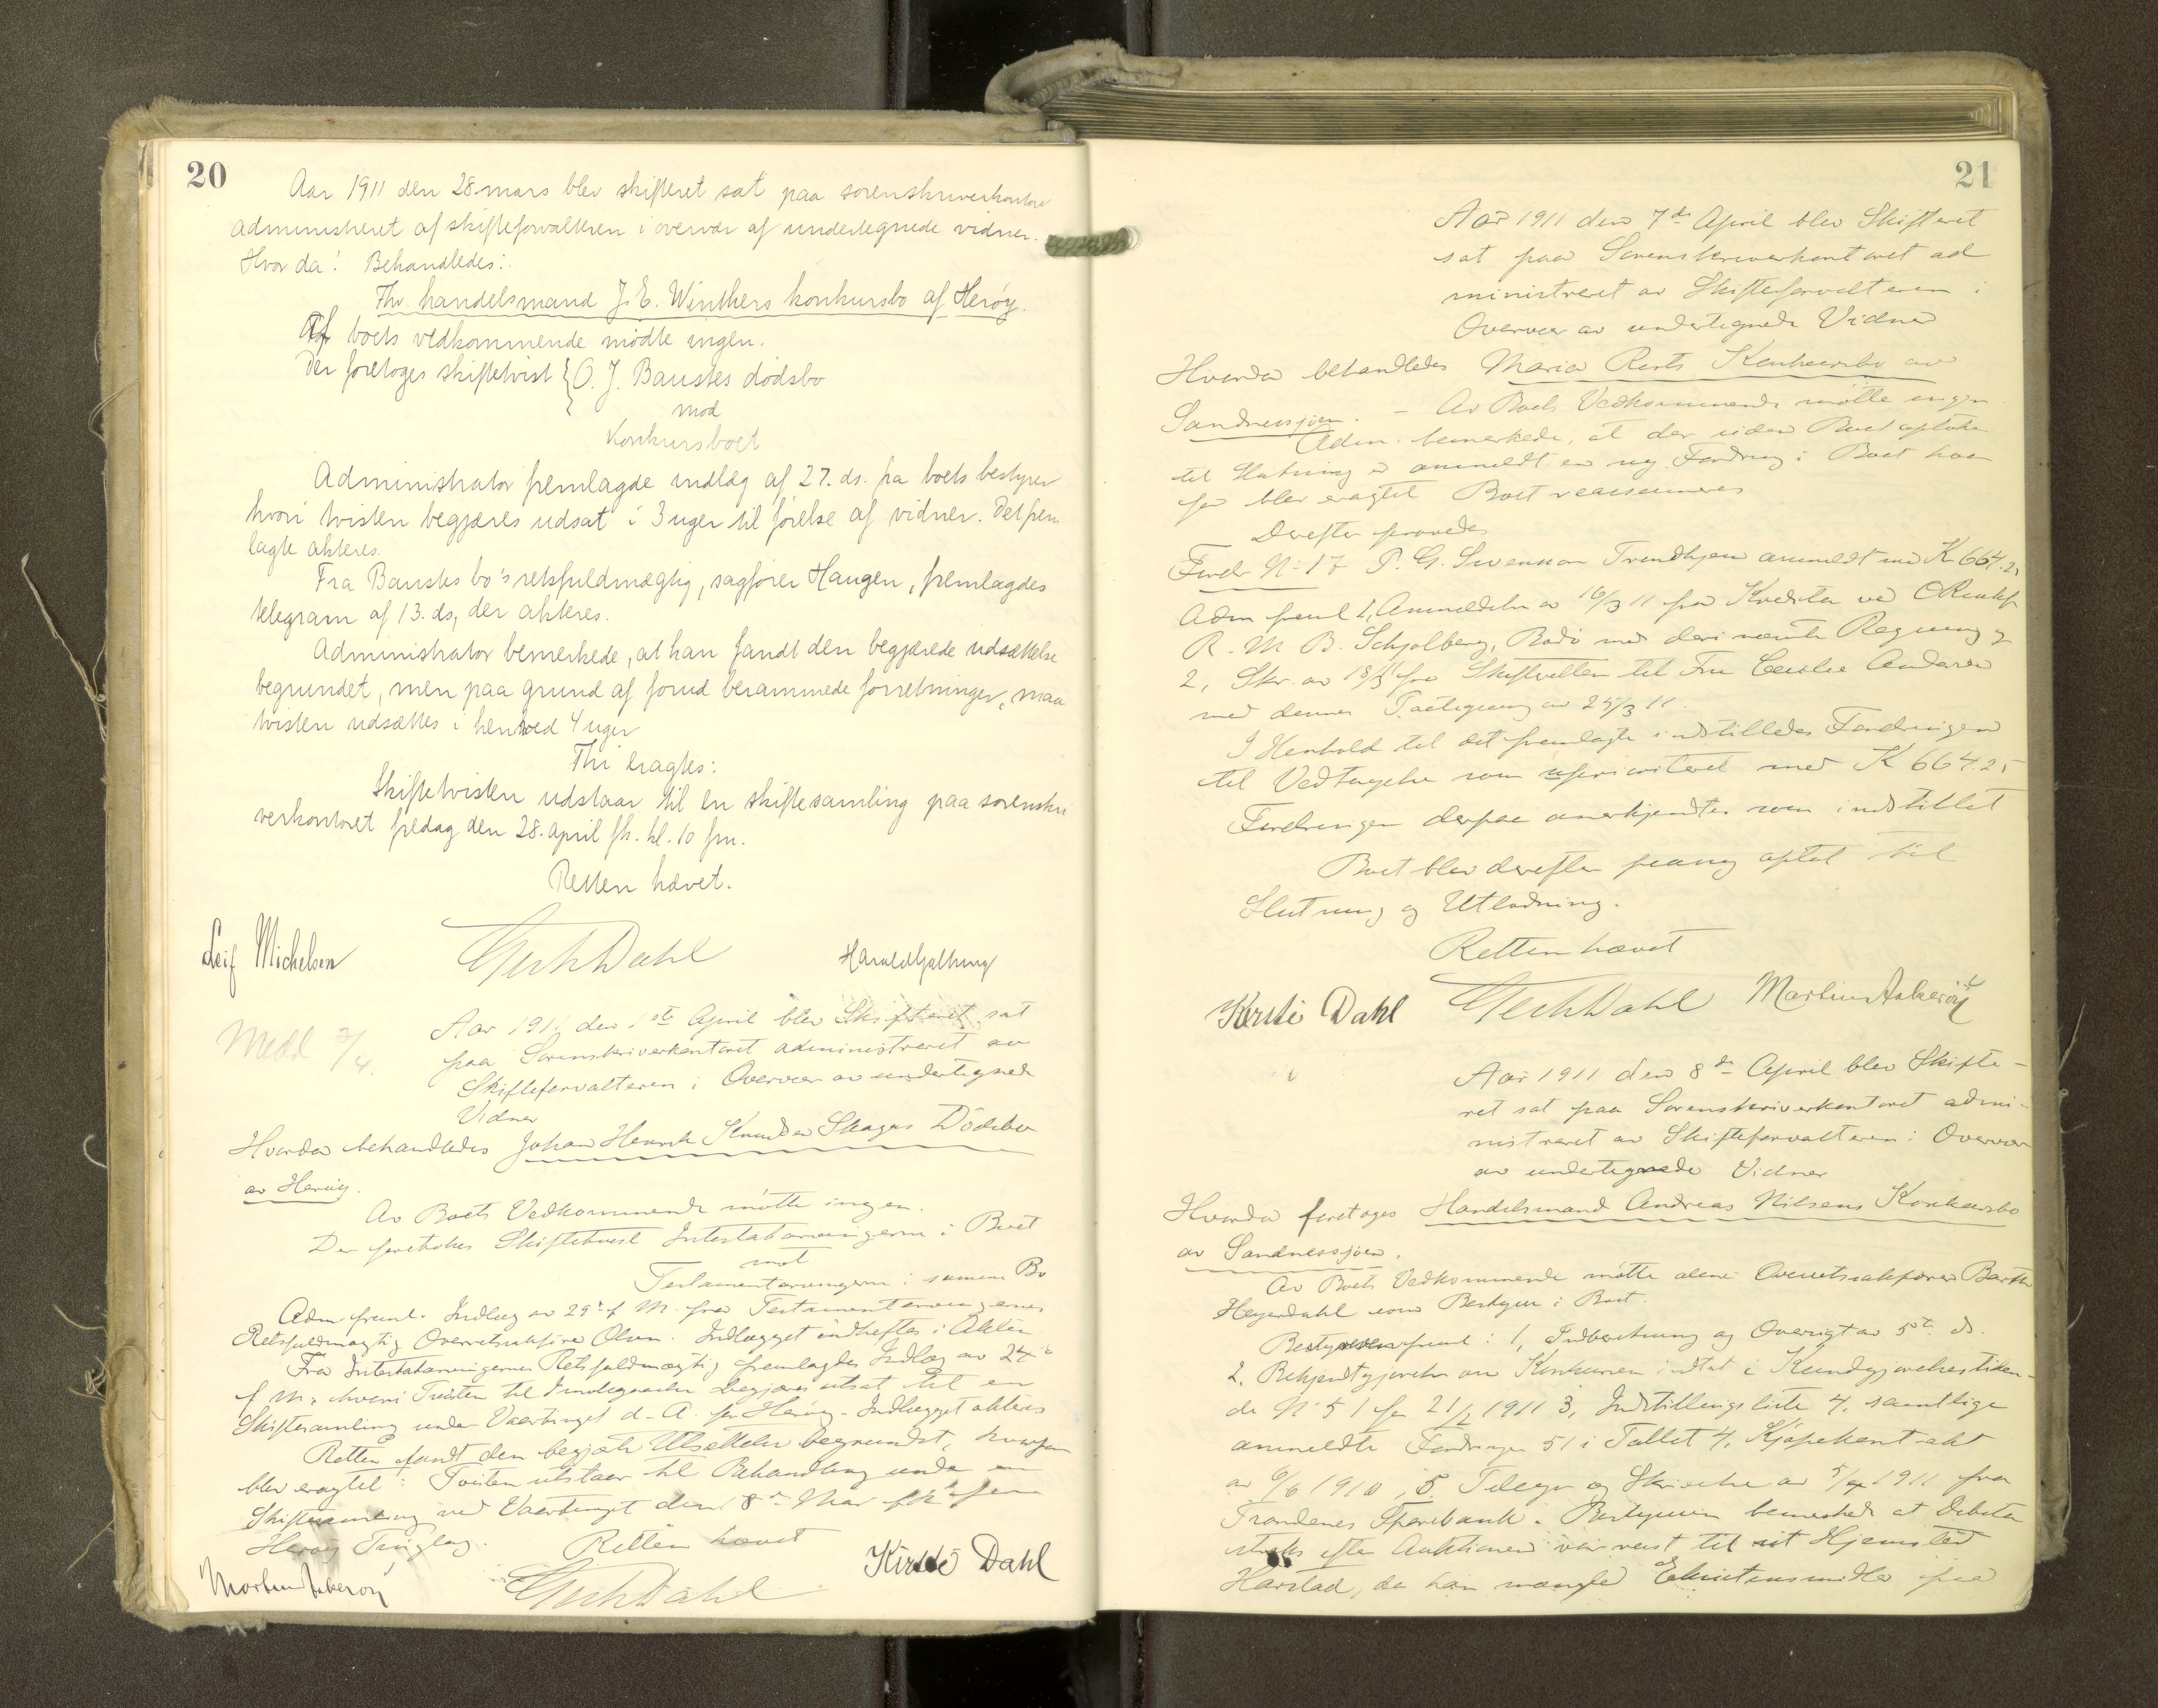 20
Aar 1911 den 28. mars blev skifteret sat paa sorenskriverkontoret
administreret af skifteforvalteren i overvær af undertegnede vidner.
Hvor da: Behandledes:
Fhv. handelsmand J. E. Winthers konkursbo af Herøy.
Af boets vedkommende mødte ingen.
Der foretoges skiftetvist { O. J. Baustes dødsbo
mod
Konkursboet
Administrator fremlagde indlæg af 27. ds. fra boets bestyrer
hvori tvisten begjæres udsat i 3 uger til førelse af vidner. Det frem
lagte akteres.
Fra Baustes bo's retsfuldmægtig, sagfører Haugen, fremlagdes
telegram af 13. ds, der akteres.
Administrator bemerkede, at han fandt den begjærede udsættelse
begrundet, men paa grund af forud berammede forretninger, maa
tvisten udsættes i henved 4 uger
Thi eragtes:
Skiftetvisten udstaar til en skiftesamling paa sorenskri
verkontoret fredag den 28. april fk. kl. 10 fm.
Retten hævet.
Leif Michelsen GerhDahl Harald Galtung
Medd 3/4.
Aar 1911 den 1ste April blev Skifteret sat
paa Sorenskriverkontoret administreret av
Skifteforvalteren i Overvær av undertegnede
Vidner
Hvorda behandledes Johan Henrik Knudsen Skagas Dödsbo
av Heröy.
Av Boets Vedkommende mötte ingen.
Der foretokes Skiftetvist Intestatarvingerne i Boet
mot
Testamentarvingerne i samme Bo
Adm freml. Indlæg av 29de f M. fra Testamentarvingernes
Retsfuldmægtig Overretssakförer Olsen. Indlægget indheftes i Akten
Fra Intestatarvingernes Retsfuldmægtig fremlagdes Indlæg av 24de
f M. hvori Tvisten til begjæres utsat til en
Skiftesamling under Vaartinget d. A. for Heröy. Indlægget akteres
Retten fandt den begjærte Utsættelse begrundet, hvorfor
blev eragtet: Tvisten utstaar til Behandling under en
Skiftesamling ved Vaartinget den 8de Mai fk for
Heröy Tinglag. Retten hævet
Martin Aakeröy GerhDahl Kirsti Dahl
21
Aar 1911 den 7de April blev Skifteret
sat paa Sorenskriverkontoret ad
ministreret av Skifteforvalteren i
Overvær av undertegnede Vidner
Hvorda behandledes Maria Konkursbo av
Sandnessjöen. - Av Boets Vedkommende mötte ingen
Adm. bemerkede, at der siden Boet optokes
til Slutning er anmeldt en ny Fordring i Boet hvor
for blev eragtet Boet reassumeres
Derefter prövedes
Fordr No 17 P. G. Svenson Trondhjem anmeldt med K 664.25
Adm freml 1, Anmeldelse av 16/3 11 fra Kreditor ved
R. M. B. Schjølberg, Bodö med deri nævnte Regning og
2, Skr. av 18/3 fra Skifteretten til Fru Andersen
med dennes Paategning av 25/3 11.
I Henhold til det fremlagte indstilledes Fordringen
til Vedtagelse som uprioriteret med K 664.25
Fordringen derpaa anerkjendtes som indstillet
Boet blev derefter paany optat til
Slutning og Utlodning.
Retten hævet
Kirsti Dahl GerhDahl Martin Aakeröy
Aar 1911 den 8de April blev Skifte-
ret sat paa Sorenskriverkontoret admi-
nistreret av Skifteforvalteren i Overvær
av undertegnede Vidner
Hvorda foretoges Handelsmand Andreas Nilsens Konkursbo
av Sandnessjöen.
Av Boets Vedkommende mötte alene Overretssakförer Barth
Heyerdahl som Bestyrer i Boet.
Bestyreren freml: 1, Indberetning og Oversigt av 5te ds.
2. Bekjendtgjørelse om Konkursen indtat i Kundgjørelsestiden-
de No 51 for 21/2 1911 3, Indstillingsliste 4. samtlige
anmeldte Fordringer 51 i Tallet 4, Kjøpekontrakt
av 6/6 1910, 5. Telegr og Skrivelse av 5/4 1911 fra
Trondenes Sparebank. Bestyreren bemerkede at Debitor
straks efter Auktionen var reist til sit Hjemsted
Harstad, da han mangled Eksistensmidler paa